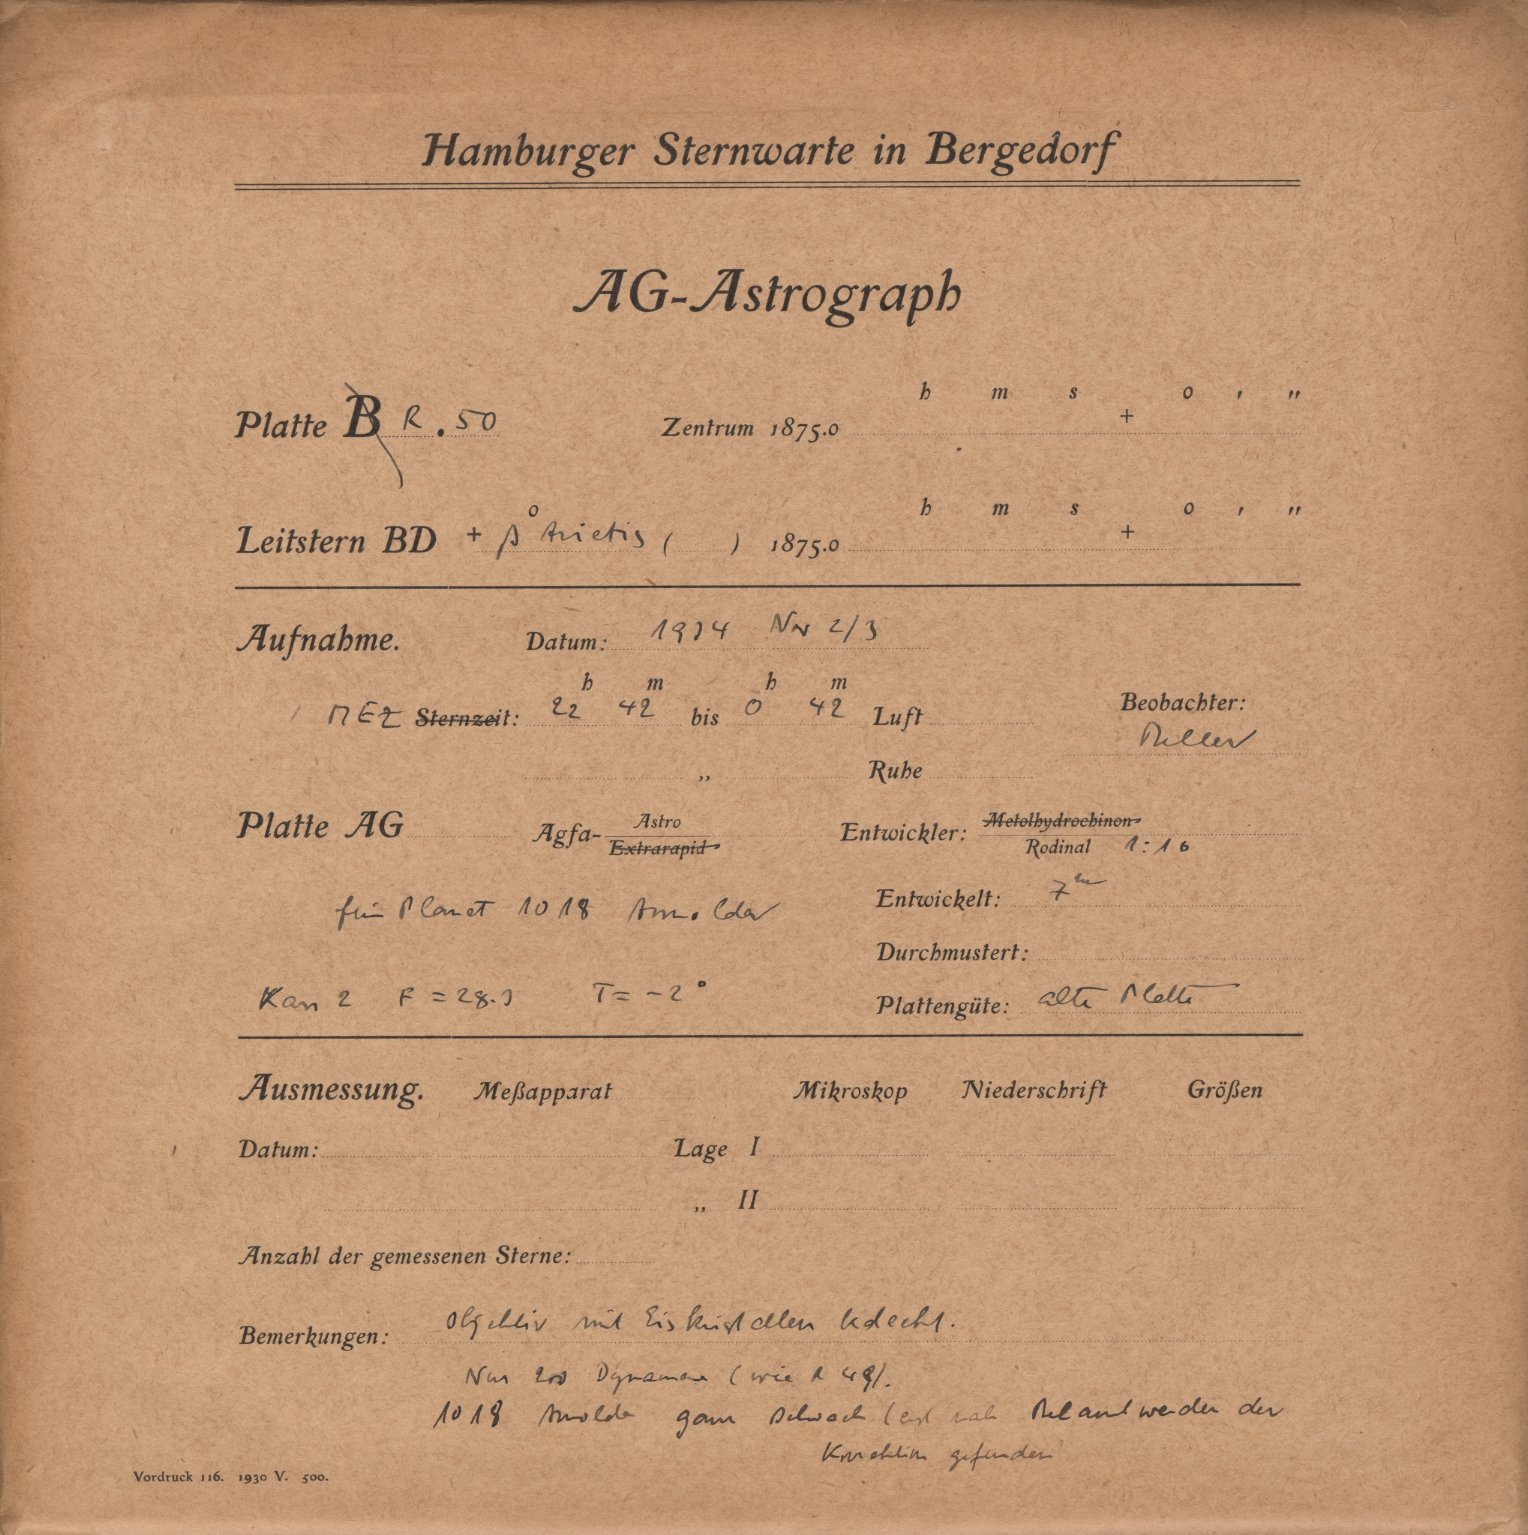 Hamburger Sternwarte in Bergedorf
AG-Astrograph
h m s o ' "
Platte B R . 50 Zentrum 1875.0 +
h m s o ' "
Leitstern BD + β Arietis ( ) 1875.0 +
Aufnahme. Datum: 1934 Nov 2/3
h m h m
MEZ Sternzeit: 22 42 bis 0 42 Luft Beobachter:
„ Ruhe
Platte AG Agfa- Astro Extrarapid Entwickler: Metolhydrochinon Rodinal 1:10
für Planet 1018 Arnolda Entwickelt: 7m
Durchmustert:
Kass 2 F = 28.3 T = -2° Plattengüte: alte Platte
Ausmessung. Meßapparat Mikroskop Niederschrift Größen
Datum: Lage I
„ II
Anzahl der gemessenen Sterne:
Bemerkungen: Objektiv mit Eiskristallen bedeckt.
Nur (wie R 49).
1018 Arnolda ganz schwach (erst nach Bekanntwerden der
Korrektion gefunden
Vordruck 116. 1930 V. 500.